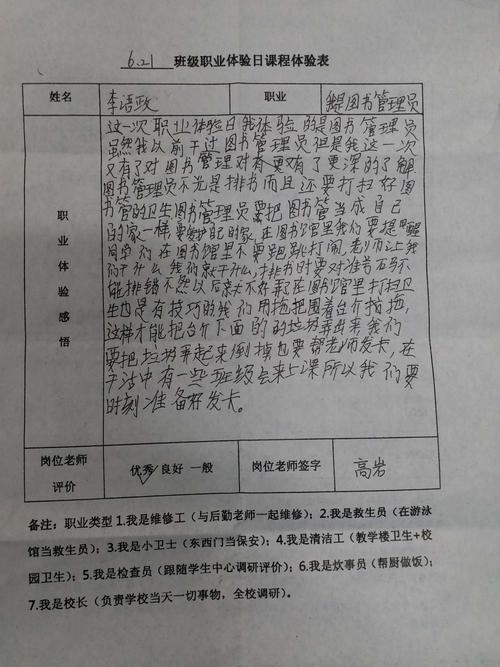 6.21 班级职业体验日课程体验表
姓名 李语政 职业 我是图书管理员
职业体验感悟
这一次职业体验日我体验的是图书管理员
虽然我以前干过图书管理员但是我这一次
又有了对图书管理对有更有了更深的了解
图书管理员不光是排书而且还要打扫好图
书管的卫生图书管理员要把图书管当成自己
的家一样,要如己的家,在图书馆里我们要提醒
同学们在图书馆里不要跑跳打闹,老师让我
们干什么我们就干什么,排书时要对准号码不
能排错不然以后就不好弄了在图书馆里打扫卫
生也是有技巧的我们用拖把围着台介拖,
这样才能把台介下面的的垃圾弄出来我们
要把垃圾弄起来倒掉也要帮老师发卡,在
干活中有一些班级会来上课所以我们要
时刻准备好发卡。
岗位老师评价 优秀 良好 一般 岗位老师签字 高岩
备注:职业类型 1.我是维修工(与后勤老师一起维修);2.我是救生员(在游泳
馆当救生员);3.我是小卫士(东西门当保安);4.我是清洁工(教学楼卫生+校
园卫生);5.我是检查员(跟随学生中心调研评价);6.我是炊事员(帮厨做饭);
7.我是校长(负责学校当天一切事物,全校调研)。